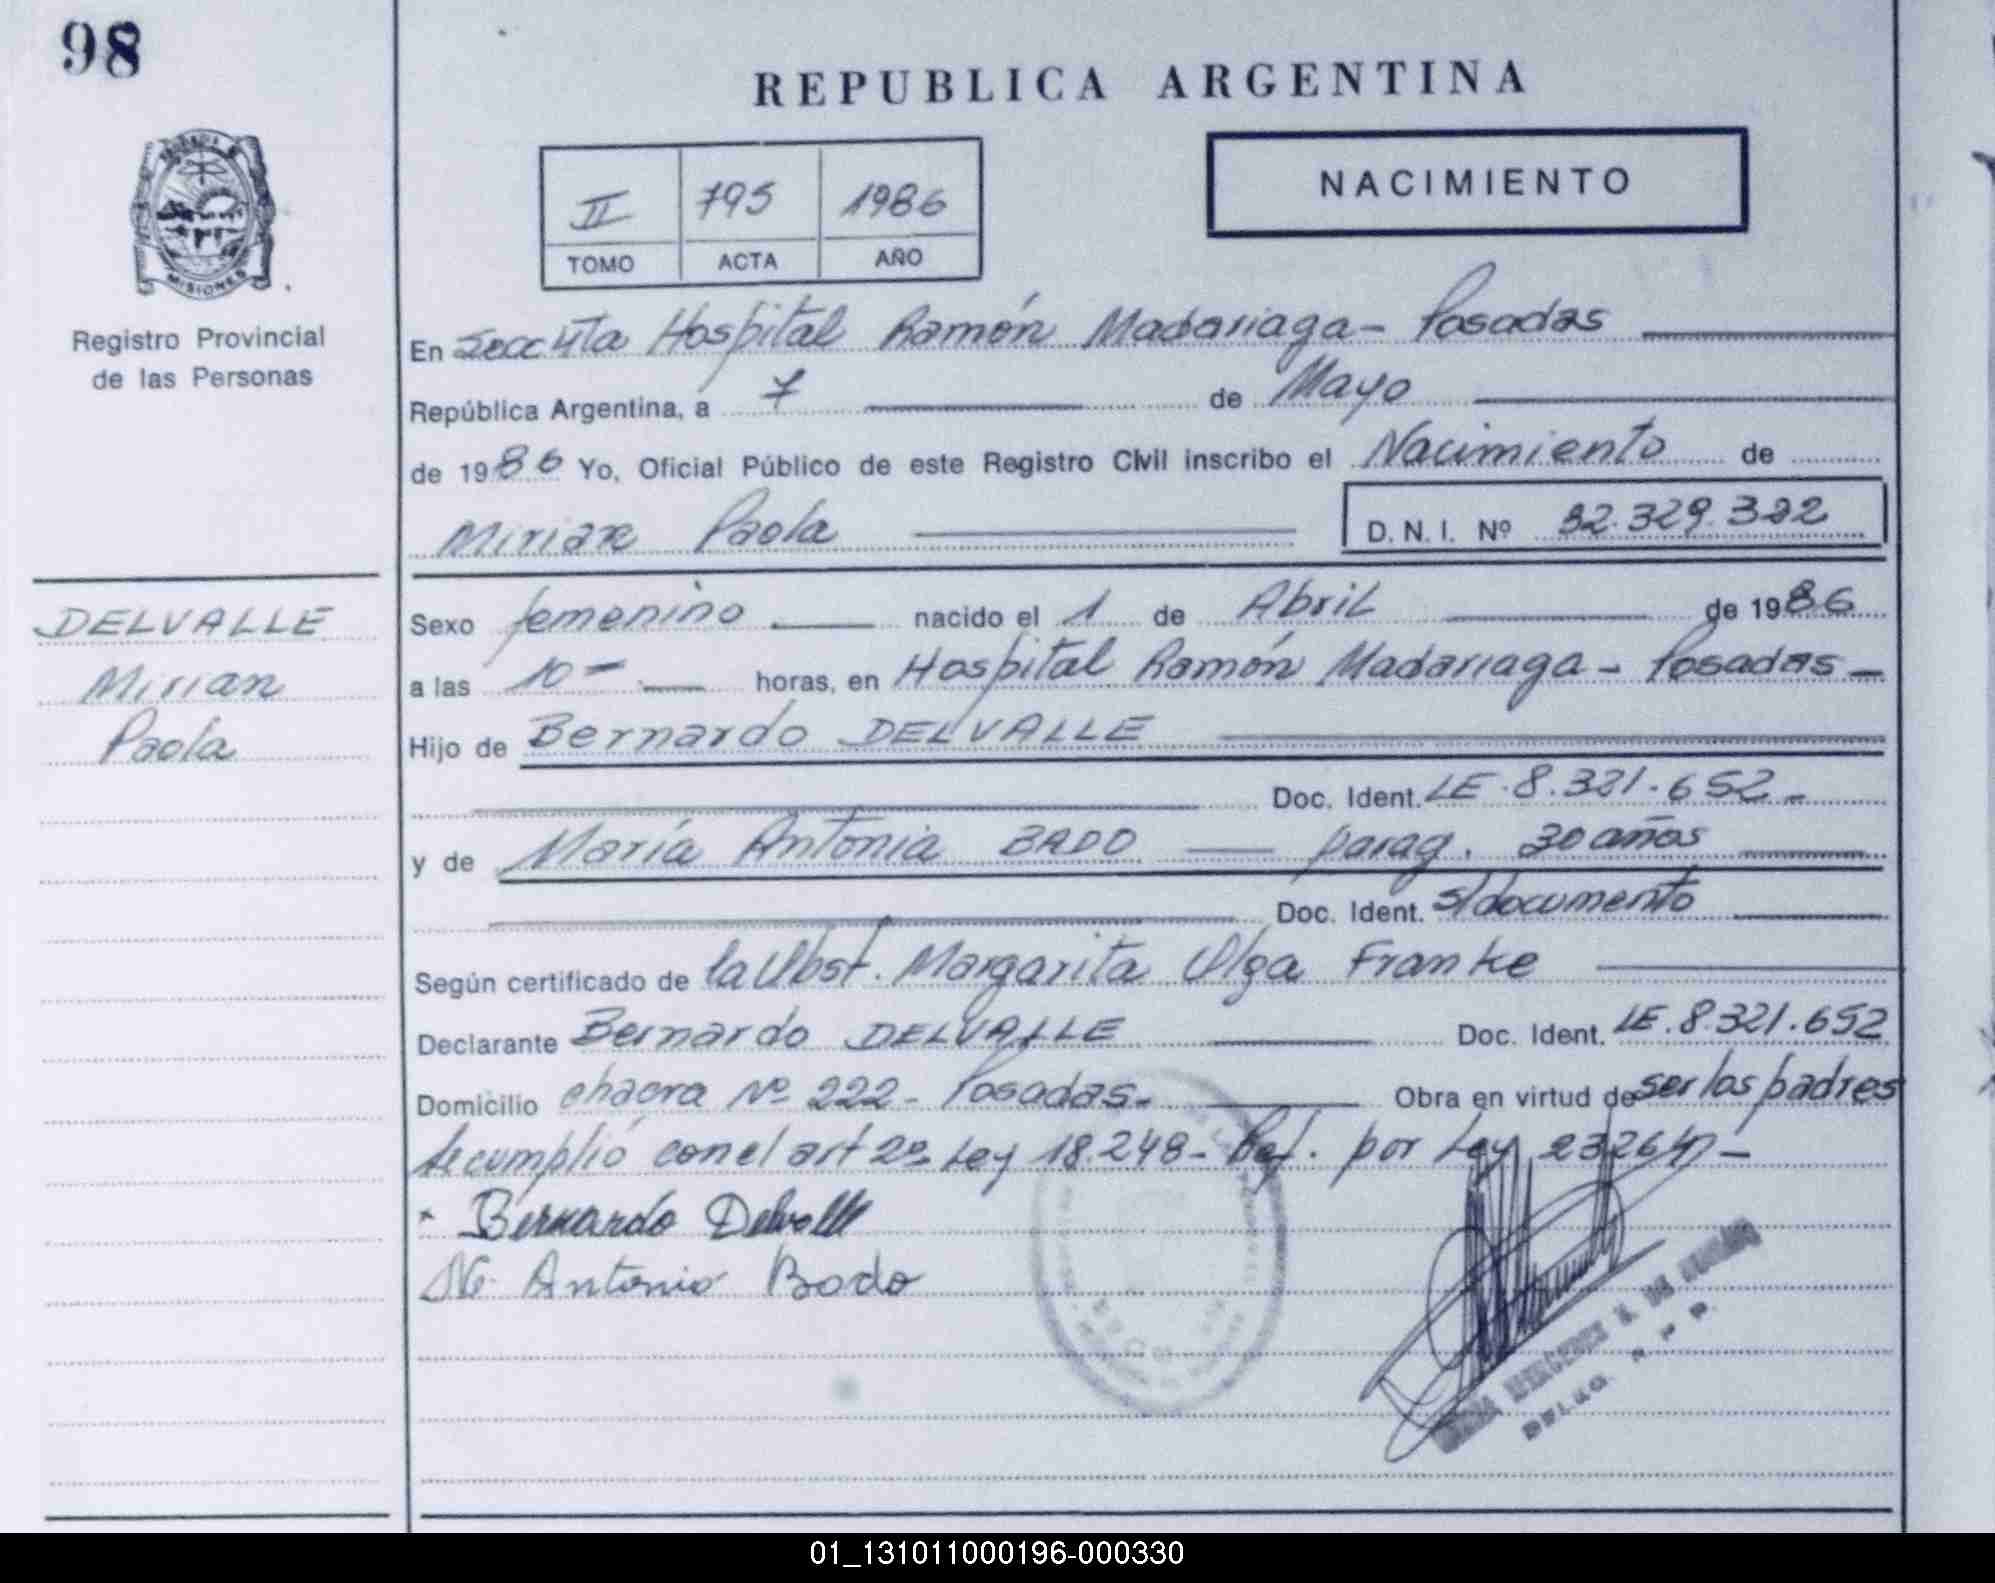 98
REPUBLICA ARGENTINA
II 795 1986
TOMO ACTA AÑO
NACIMIENTO
MISIONES
Registro Provincial
de las Personas
En Secc 4ta Hospital Ramón Madariaga - Posadas
República Argentina, a 7 de Mayo
de 1986 Yo, Oficial Público de este Registro Civil inscribo el Nacimiento de
Mirian Paola D.N.I. Nº 32.329.322
DELVALLE
Mirian
Paola
Sexo femenino nacido el 1 de Abril de 1986
a las 10 - horas, en Hospital Ramón Madariaga - Posadas -
Hijo de Bernardo DELVALLE
Doc. Ident. LE. 8.321.652 -
y de María Antonia BADO parag. 30 años
Doc. Ident. s/documento
Según certificado de la Obst. Margarita Olga Franke
Declarante Bernardo DELVALLE Doc. Ident. LE. 8.321.652
Domicilio chacra Nº 222 - Posadas - Obra en virtud de ser los padres
Se cumplió con el art 2º Ley 18.248 - Ref. por Ley 23264 -
Bernardo Delvalle
Antonia Bado
DE
01_131011000196-000330